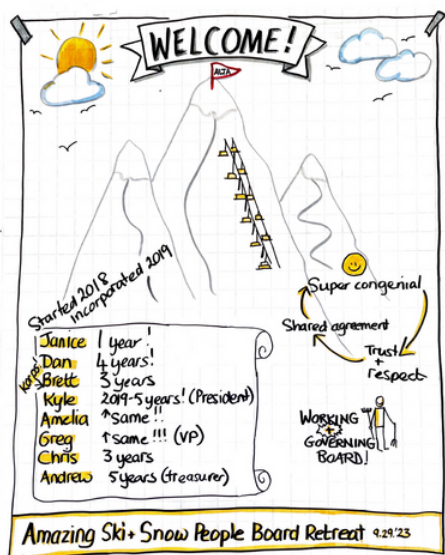 WELCOME!
ALTA
Started 2018
Incorporated 2019
Janice 1 year!
Dan 4 years!
Brett 3 years
Kyle 2019-5 years! (President)
Amelia ↑ same!!
Greg ↑ same!!! (VP)
Chris 3 years
Andrew 5 years (treasurer)
Super congenial
Shared agreement
Trust
+
respect
WORKING
+
GOVERNING
BOARD!
Amazing Ski + Snow People Board Retreat 9.29.'23